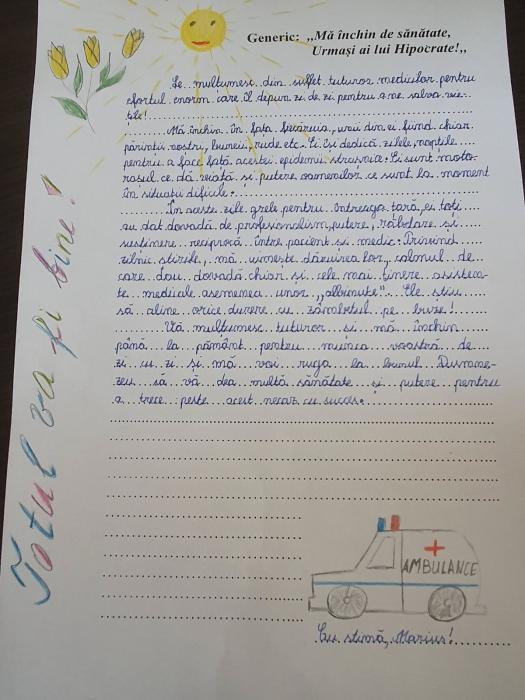 Generic: „Mă închin de sănătate,
Urmași ai lui Hipocrate!„
Le mulțumesc din suflet tuturor medicilor pentru
efortul enorm care îl depun zi de zi pentru a ne salva vie-
țile!
Mă închin în fața fiecăruia, unii din ei fiind chiar
părinții noștri, buneii, rude etc. Ei își dedică zilele, nopțile
pentru a face față acestei epidemii straşnice. Ei sunt moto-
rașul ce dă viață și putere oamenilor ce sunt la moment
în situații dificile.
În aceste zile grele pentru întreaga țară, ei toți
au dat dovadă de profesionalism, putere, răbdare și
susținere reciprocă între pacient și medic. Privind
zilnic știrile, mă uimește dăruirea lor, calmul de
care dau dovadă chiar și cele mai tinere asisten-
te medicale asemenea unor „albinuțe". Ele știu
să aline orice durere cu zâmbetul pe buze!
Vă mulțumesc tuturor și mă închin
până la pământ pentru munca voastră de
zi cu zi și mă voi ruga la bunul Dumne-
zeu să vă dea multă sănătate și putere pentru
a trece peste acest necaz cu succes.
Totul va fi bine!
AMBULANCE
Cu stimă, Marius!